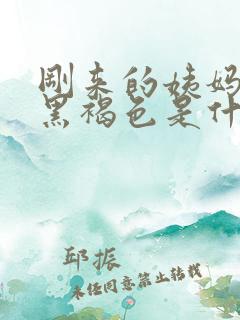 刚来的姨妈
黑褐色是什
邱振
未经同意禁止转载